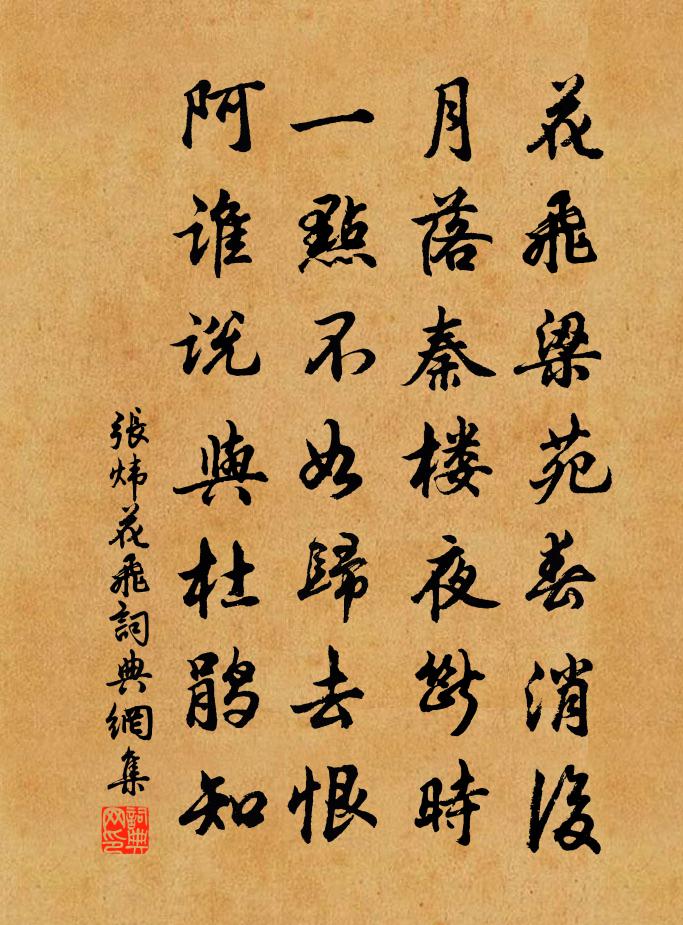 花飛梁苑春消後
月落秦楼夜斷時
一點不如歸去恨
阿誰説與杜鹃知
張炜花飛詞典網集
詞典网印